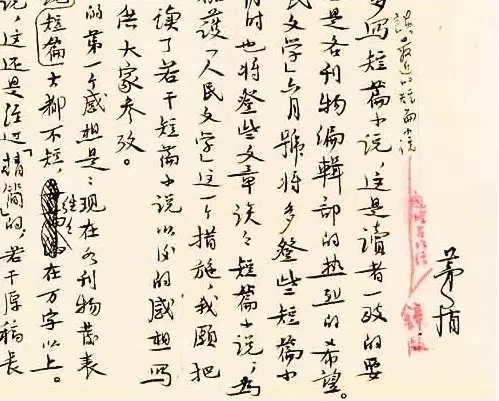 茅盾
談最近的短篇小说
多写短篇小说，这是讀者一致的要
是各刊物编輯部的热烈的希望。
民文学」六月號将多登些短篇小
时也将登些文章谈谈短篇小说，为
護「人民文学」这一个措施，我願把
读了若干短篇小说以后的感想写
供大家参攷。
的第一个感想是：现在各刊物发表
短篇大都不短，往往在万字以上。
说，这还是经过「精简」的，若干原稿长